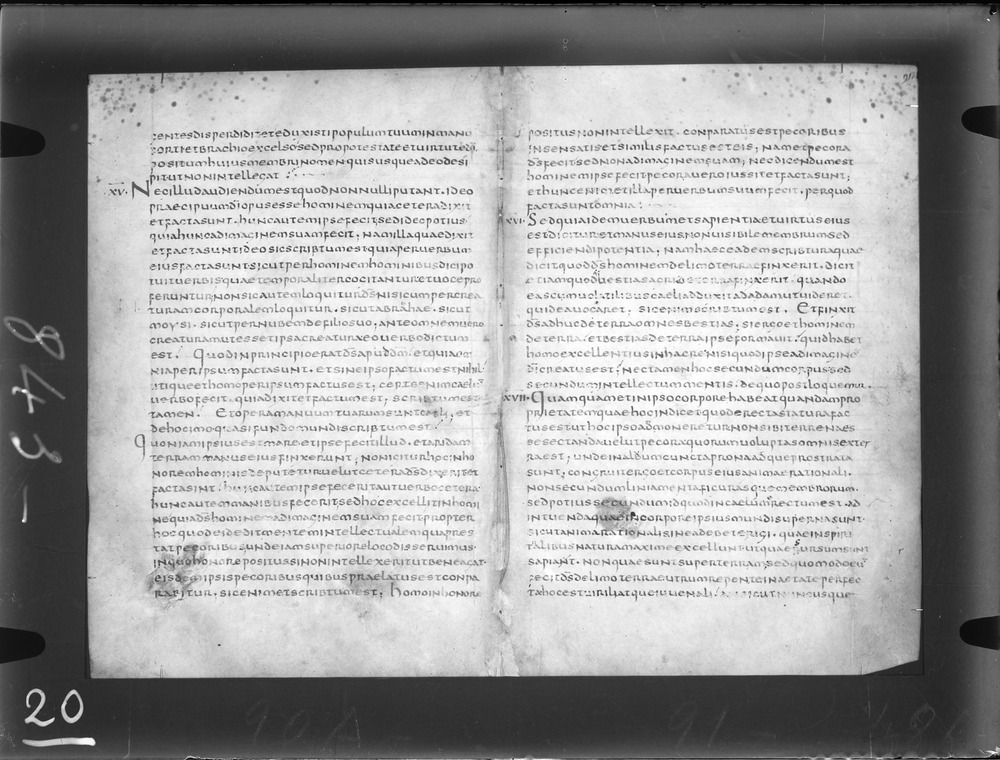 gentesdisperdidit eteduxistipopulumtuuminmanu
fortietbrachioexcelso sedpropotestateetuirtutedi
positumhuiusmembrinomenquisusqueadeodesi
pitutnonintellegat
XV. Necilludaudiendumestquodnonnulliputant. ideo
praecipuumdiopusessehominemquiaceteradixit
etfactasunt. huncautemipsefecit sedideopotius
quiahuncadimaginemsuamfecit. namillaquaedixit
etfactasuntideosicscribtumestquiaperuerbum
eiusfactasunt sicutperhominemhominibusdicipo
tuituerbisquaetemporalitercogitanturetuocepro
feruntur nonsicautemloquiturdsnisicumpercrea
turamcorporalemloquitur. sicutabrahae. sicut
moysi. sicutpernubemdefiliosuo. anteomnemuero
creaturamutessetipsacreaturaeouerbodictum
est. Quodinprincipioeratdsapuddm. etquiaom
niaperipsumfactasunt. etsineipsofactumestnihil
utiqueethomoperipsumfactusest. certenimcaelum
uerbofecit. quiadixitetfactumest. scribtumest
tamen. Etoperamanuumtuarumsuntcaeli. et
dehocimoquasifundomundiscribtumest
Quoniamipsiusestmareetipsefecitillud. etaridam
terrammanuseiusfinxerunt. nonigiturhocinho
noremhominisdeputeturuelutceteradsdixeritet
factasint. huncautemipsefeceritautuerbocetera
huncautemmanibusfecerit sedhocexcellitinhomi
nequiadshominemadimaginemsuamfecit propter
hocquodeideditmentemintellectualemquapraes
tatpecoribusundeiamsuperiorelocodisseruimus
inquohonorepositussinonintellexeritutbeneagat
eisdemipsispecoribusquibuspraelatusestconpa
rabitur. sicenimetscribtumest. homoinhonore
positusnonintellexit. conparatusestpecoribus
insensatisetsimilisfactusesteis; nametpecora
dsfecitsednonadimaginemsuam; necdicendumest
hominemipsefecitpecoraueroiussitetfactasunt;
ethuncenimetillaperuerbumsuumfecit. perquod
factasuntomnia
XVI. Sedquiaidemuerbumetsapientiaetuirtuseius
estdicituretmanuseiusnonuisibilemembrumsed
efficiendipotentia. namhaeceademscribturaquae
dicitquoddshominemdelimoterraefinxerit. dicit
etiamquodbestiasagridexterrafinxerit. quando
eascumuolatilibuscaeliadduxitadadamutuideret
quideauocaret. sicenimscribtumest. Etfinxit
dsadhucdeterraomnesbestias. siergoethominem
deterra. etbestiasdeterraipseformauit. quidhabet
homoexcellentiusinhacrenisiquodipseadimaginem
dicreatusest nectamenhocsecundumcorpussed
secundumintellectummentis. dequopostloquemur.
XVII. Quamquametinipsocorporehabeatquandampro
prietatemquaehocindicetquoderectastaturafac
tusestuthocipsoadmonereturnonsibiterrenaes
sesectandauelutpecoraquorumuoluptasomnisexter
raest. undeinaluumcunctapronaadqueprostrata
sunt. congruitergoetcorpuseiusanimaerationali.
nonsecundumliniamentafigurasquemembrorum.
sedpotiussecundumidquodincaelumerectumest. ad
intuendaquaeincorporeipsiusmundisupernasunt
sicutanimarationalisineadebeterigi. quaeinspiri
talibusnaturamaximeexcelluntutquaesursumsunt
sapiant. nonquaesuntsuperterramsedquomodoeum
fecitdsdelimoterraeutrumrepenteinaetateperfec
tahocestuiriliatqueiuuenali